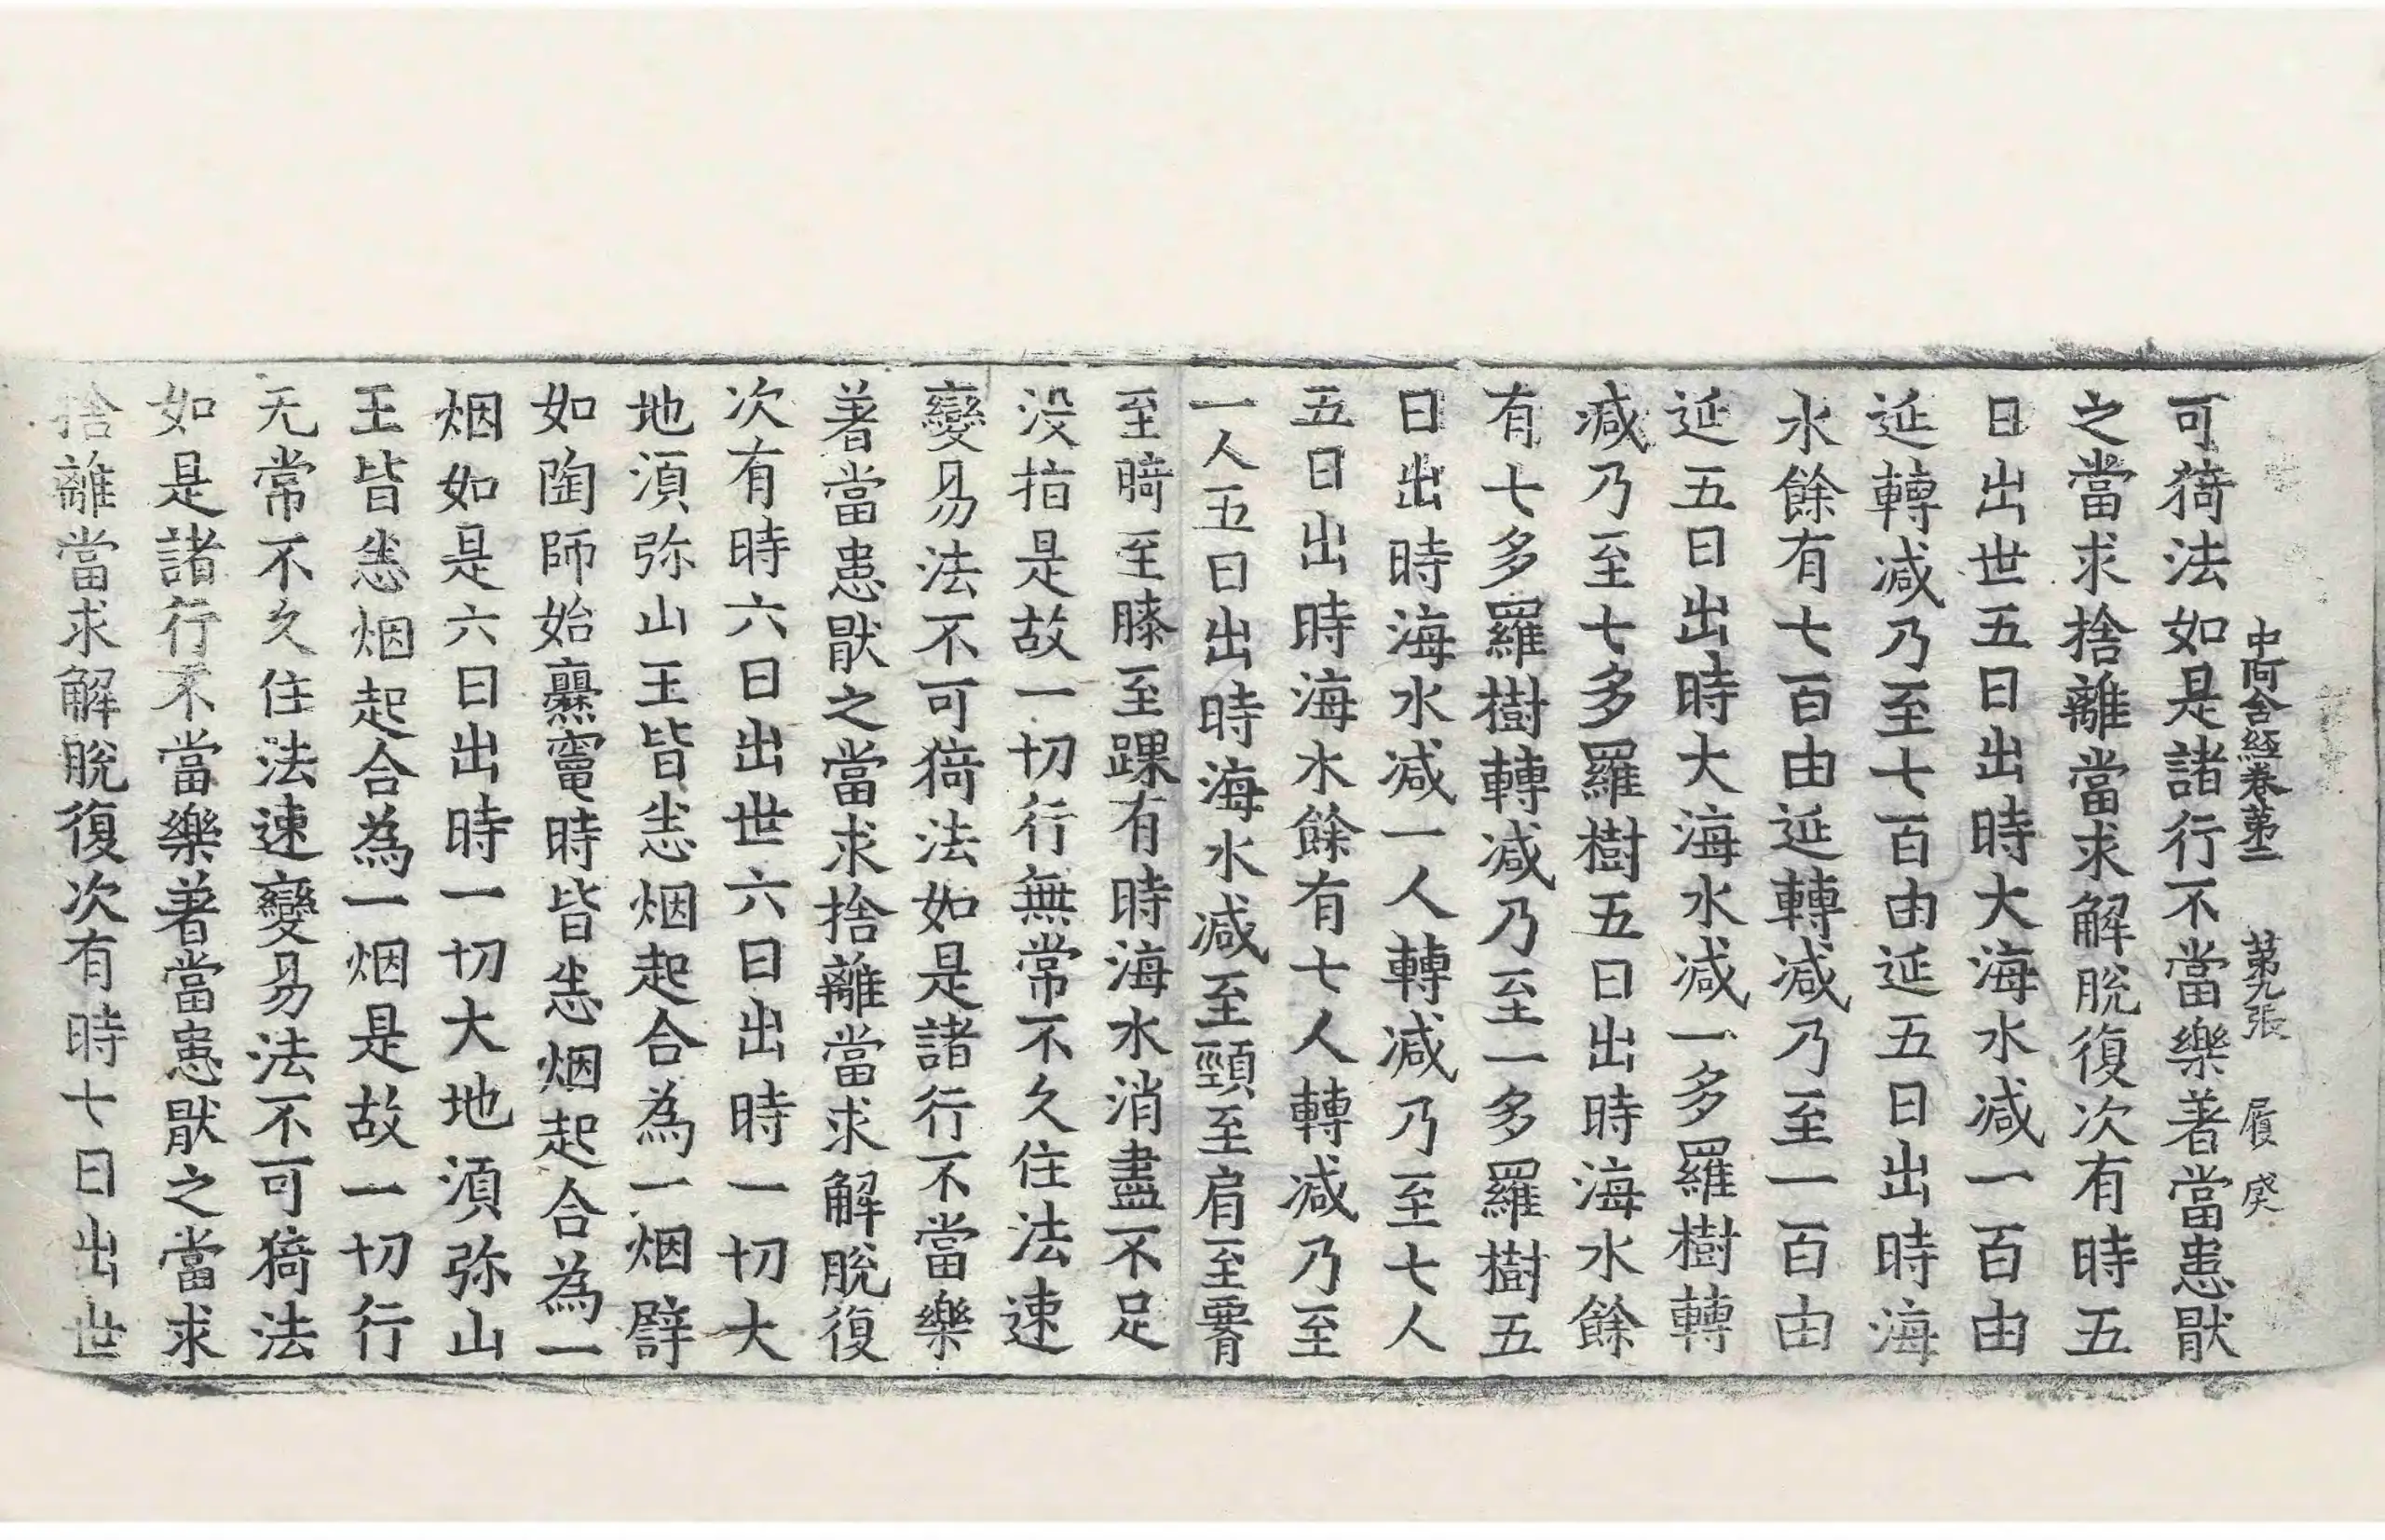 中阿含經卷第二　第九張　履癸
可猗法如是諸行不當樂著當患猒
之當求捨離當求解脫復次有時五
日出世五日出時大海水減一百由
延轉減乃至七百由延五日出時海
水餘有七百由延轉減乃至一百由
延五日出時大海水減一多羅樹轉
減乃至七多羅樹五日出時海水餘
有七多羅樹轉減乃至一多羅樹五
日出時海水減一人轉減乃至七人
五日出時海水餘有七人轉減乃至
一人五日出時海水減至頸至肩至䙅
至䏢至膝至踝有時海水消盡不足
没指是故一切行無常不久住法速
變易法不可猗法如是諸行不當樂
著當患猒之當求捨離當求解脫復
次有時六日出世六日出時一切大
地湏弥山王皆悉烟起合為一烟譬
如陶師始爨竈時皆悉烟起合為一
烟如是六日出時一切大地湏弥山
王皆悉烟起合為一烟是故一切行
无常不久住法速變易法不可猗法
如是諸行不當樂著當患猒之當求
捨離當求解脫復次有時七日出世